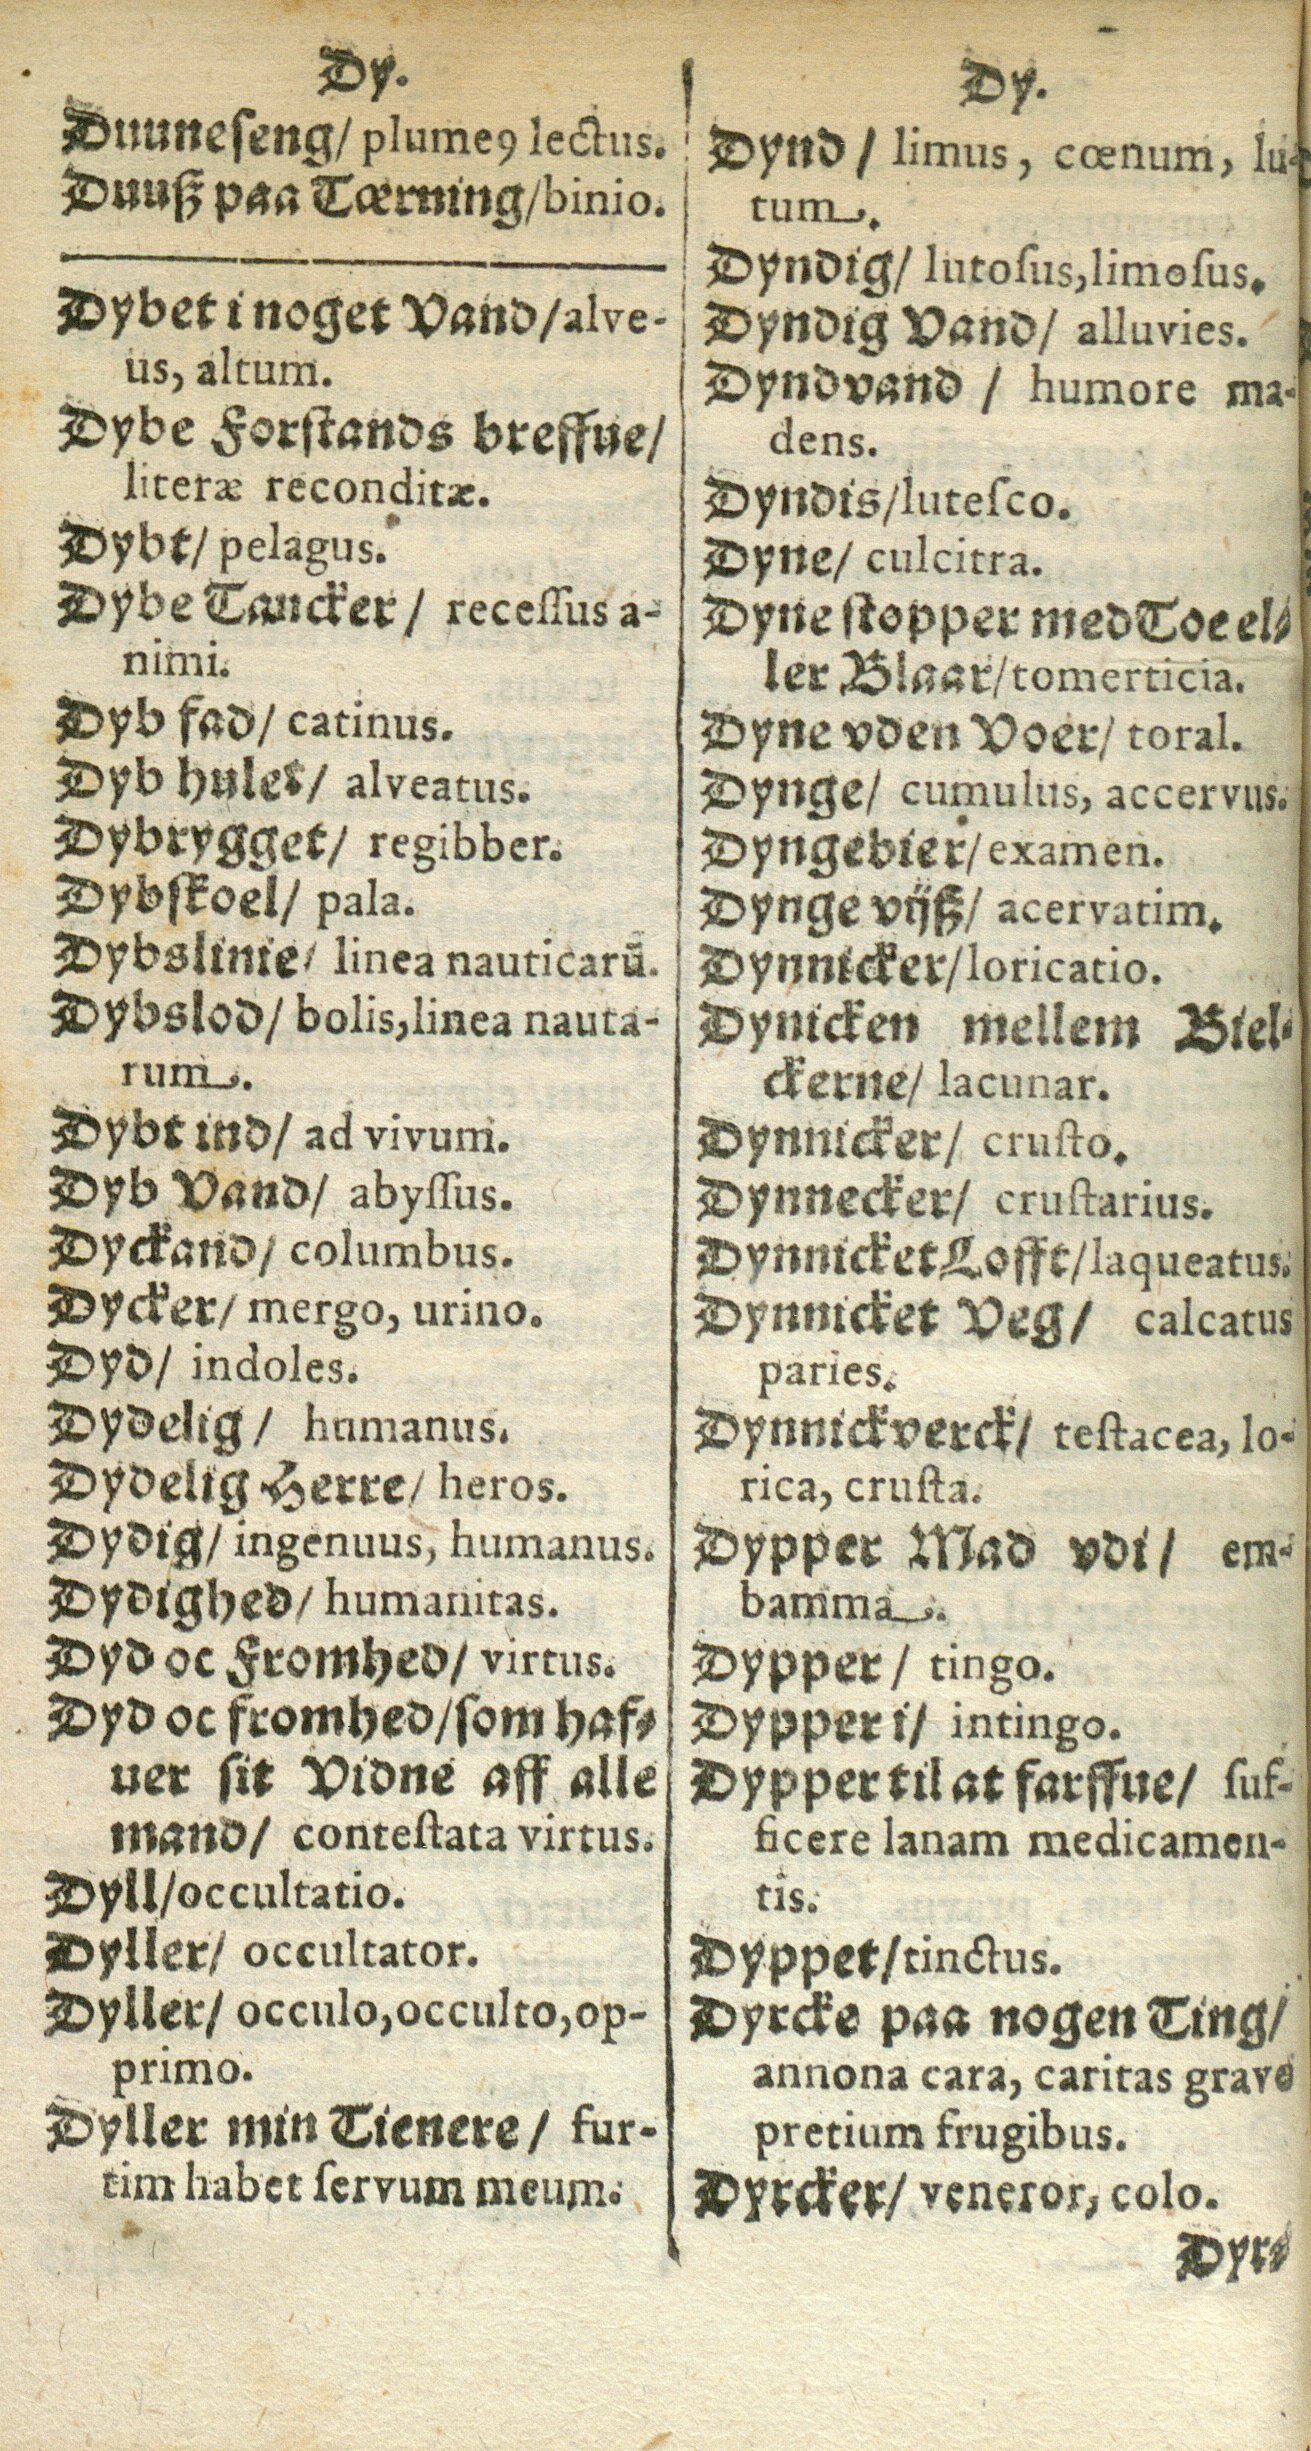 Dy.
Duuneſeng/ plumeꝰ lectus.
Duuß paa Tærning/binio.
Dybet i noget Vand/alve-
us, altum.
Dybe Forſtands breffue/
literæ reconditæ.
Dybt/ pelagus.
Dybe Tancker/ receſſus a-
nimi.
Dyb fad/ catinus.
Dyb hulet/ alveatus.
Dybrygget/ regibber.
Dybſkoel/ pala.
Dybslinie/ linea nauticarū.
Dybslod/ bolis,linea nauta-
rum.
Dybt ind/ ad vivum.
Dyb Vand/ abyſſus.
Dyckand/ columbus.
Dycker/ mergo, urino.
Dyd/ indoles.
Dydelig/ humanus.
Dydelig Herre/ heros.
Dydig/ ingenuus, humanus.
Dydighed/ humanitas.
Dyd oc Fromhed/ virtus.
Dyd oc fromhed/ſom haf-
uer ſit Vidne aff alle
mand/ conteſtata virtus.
Dyll/occultatio.
Dyller/ occultator.
Dyller/ occulo,occulto,op-
primo.
Dyller min Tienere/ fur-
tim habet ſervum meum.
Dy.
Dynd/ limus, cœnum, lu-
tum.
Dyndig/ lutoſus,limoſus.
Dyndig Vand/ alluvies.
Dyndvand/ humore ma-
dens.
Dyndis/luteſco.
Dyne/ culcitra.
Dyne ſtopper med Toe el-
ler Blaar/tomerticia.
Dyne vden Voer/ toral.
Dynge/ cumulus, accervus.
Dyngebier/examen.
Dynge vijß/ acervatim.
Dynnicker/loricatio.
Dynicken mellem Biel-
ckerne/ lacunar.
Dynnicker/ cruſto.
Dynnecker/ cruſtarius.
Dynnicket Lofft/laqueatus.
Dynnicket Veg/ calcatus
paries.
Dynnickverck/ teſtacea, lo-
rica, cruſta.
Dypper Mad vdi/ em-
bamma.
Dypper/ tingo.
Dypper i/ intingo.
Dypper til at farffue/ ſuf-
ficere lanam medicamen-
tis.
Dyppet/tinctus.
Dyrcke paa nogen Ting/
annona cara, caritas grave
pretium frugibus.
Dyrcker/ veneror, colo.
Dyr-